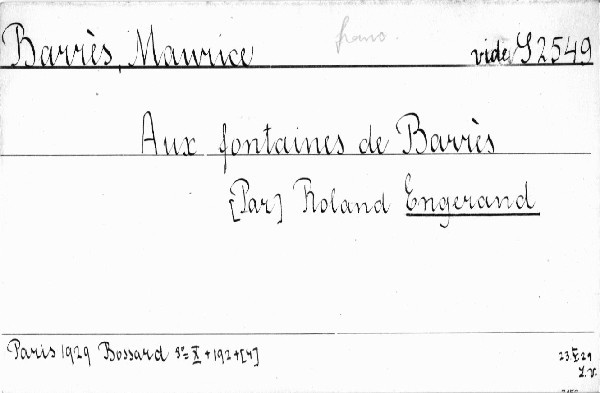 Barrès, Maurice franc. vide S 2549
Aux fontaines de Barrès
[Par] Roland Engerand
Paris 1929 Bossard 8º= X + 192 + [4]
23.X.29